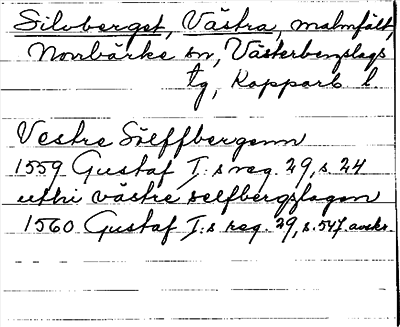 Silvberget, Västra, malmfält,
Norrbärke sn, Västerbergslags
tg, Kopparb l
Vestre Sölffbergenn
1559 Gustaf I:s reg. 29, s. 24
uthi västre selfbergslagen
1560 Gustaf I:s reg. 29, s. 547 avskr.